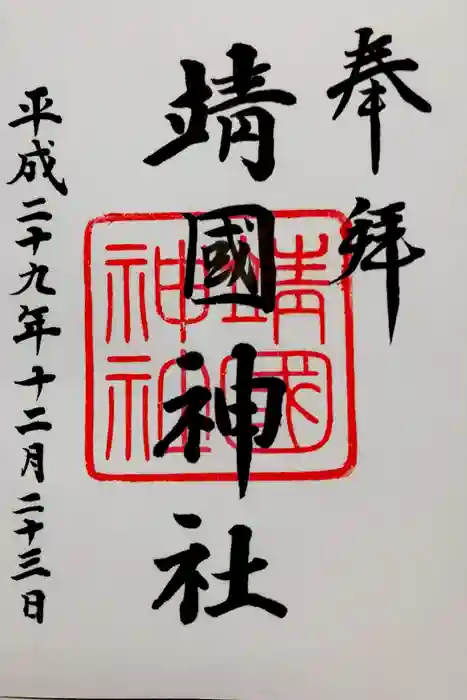 奉拝
靖國神社
靖國
神社
平成二十九年十二月二十三日